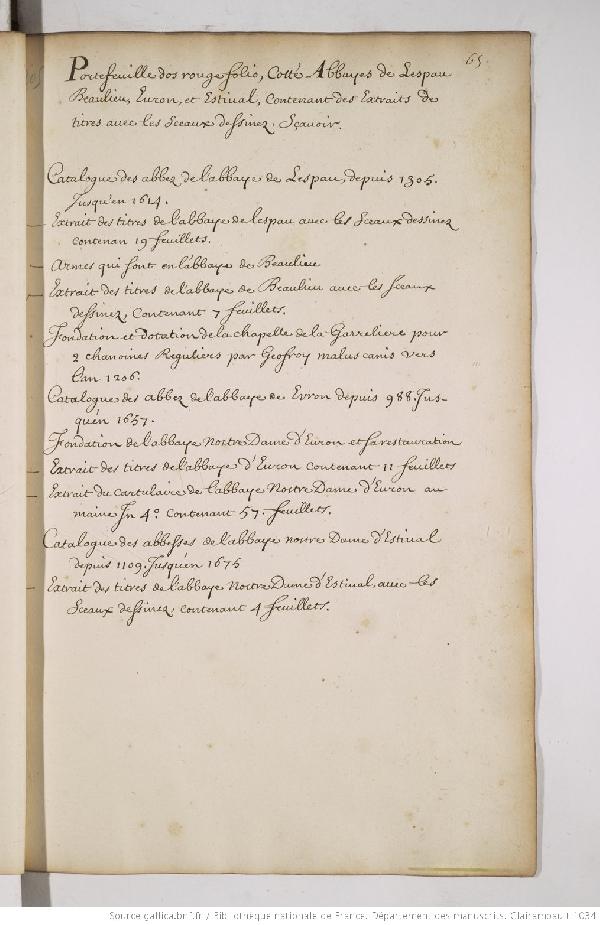 65.
Portefeuille dos rouge folio, Cotté Abbayes de Lespau
Beaulieu, Euron, et Estiual, Contenant des Extraits de
titres auec les Sceaux dessinez. Sçauoir.
Catalogue des abbez de l'abbaye de Lespau, depuis 1305.
Jusqu'en 1614.
Extrait des titres de l'abbaye de lespau auec les Sceaux dessinez
contenan 19 feuillets.
Armes qui sont en l'abbaye de Beaulieu
Extrait des titres de l'abbaye de Beaulieu auec les sceaux
dessinez, Contenant 7 feuillets.
Fondation et dotation de la chapelle de la Garreliere pour
2 chanoines Reguliers par Geofroy malus canis vers
l'an 1206.
Catalogue des abbez de l'abbaye de Evron depuis 988. Jus-
qu'en 1657.
Fondation de l'abbaye Nostre Dame d'Euron et sa restauration
Extrait des titres de l'abbaye d'Euron contenant 11 feuillets
Extrait du cartulaire de l'abbaye Nostre Dame d'Euron au
maine Jn 4.º contenant 57. feuillets.
Catalogue des abbesses de l'abbaye nostre Dame d'Estiual
depuis 1109. Jusqu'en 1675
Extrait des titres de l'abbaye Nostre Dame d'Estiual, auec les
Sceaux dessinez, contenant 4 feuillets.
Source gallica.bnf.fr / Bibliothèque nationale de France. Département des manuscrits. Clairambault 1034